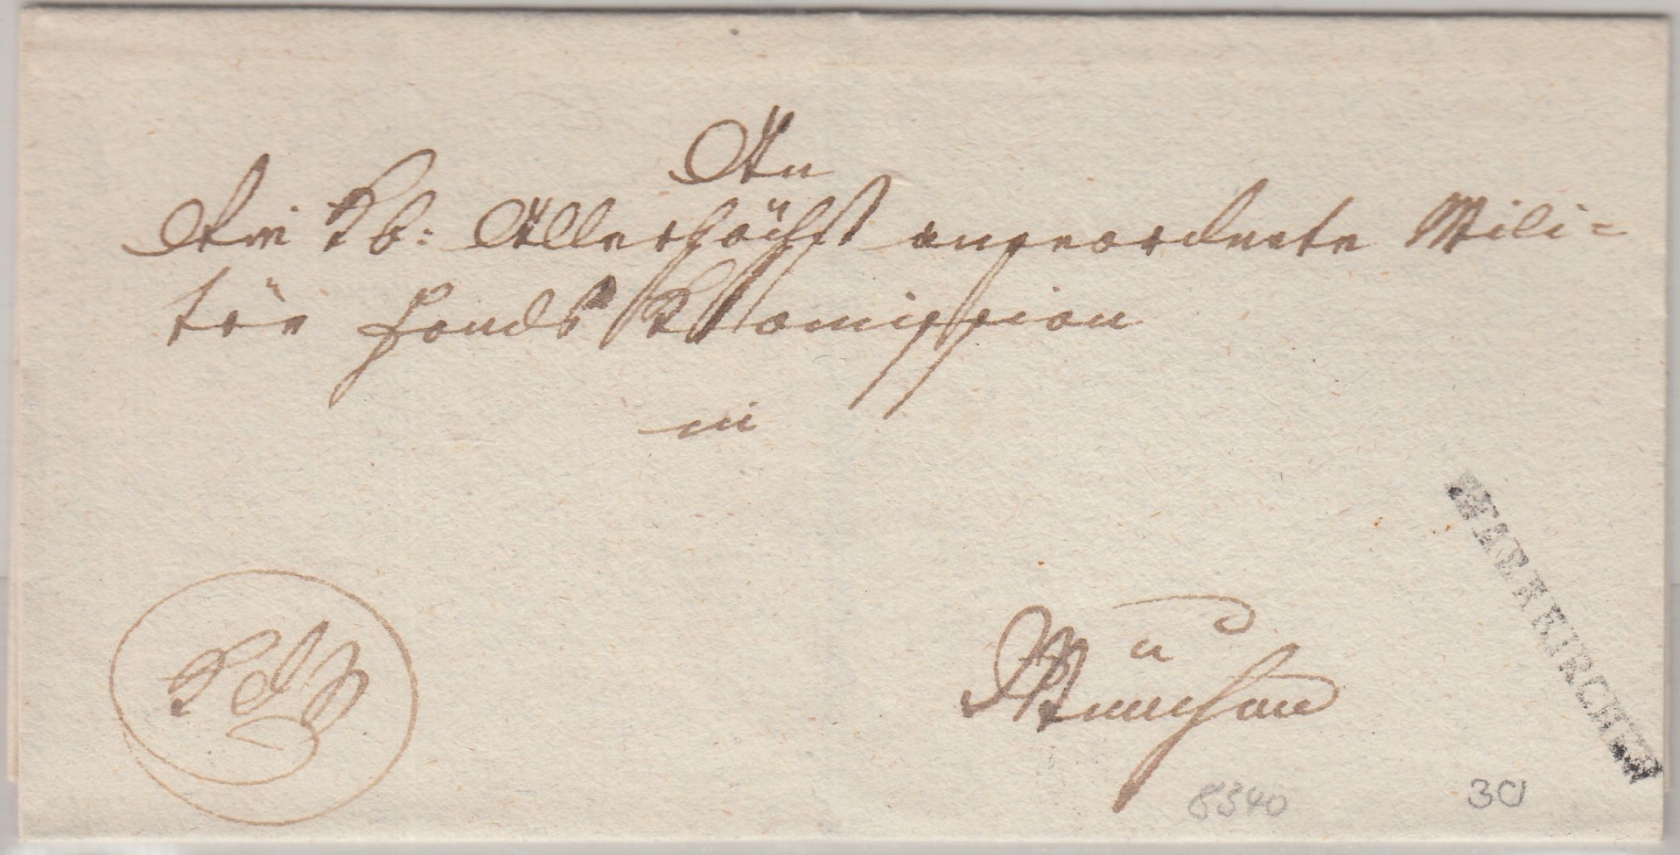 An
die Kb: Allerhöchst angeordnete Mili=
tär Fonds Kommission
in
München
PFARRKIRCHEN
8340
30